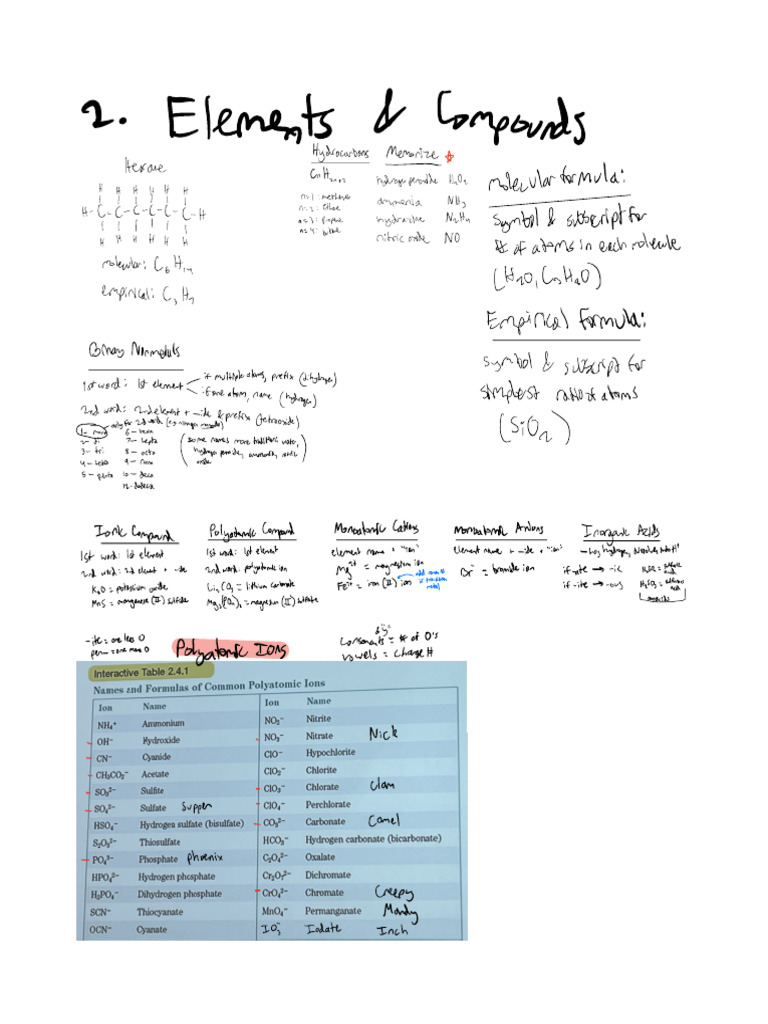 2. Elements & Compounds
Hexane
H H H H H H
H-C-C-C-C-C-C-H
H H H H H H
molecular: C6H14
empirical: C3H7
Hydrocarbons
CnH2n+2
n=1: methane
n=2: Ethane
n=3: Propane
n=4: butane
Memorize
hydrogen peroxide H2O2
ammonia NH3
hydrazine N2H4
nitric oxide NO
molecular formula:
symbol & subscript for
# of atoms in each molecule
(H2O, C3H8O)
Empirical Formula:
symbol & subscript for
simplest ratio of atoms
(SiO2)
Binary Nonmetals
1st word: 1st element
if multiple atoms, prefix (dihydrogen)
if one atom, name (hydrogen)
2nd word: 2nd element + -ide & prefix (tetroxide)
only for 2nd word
1- mono
2- di
3- tri
4- tetra
5- penta
6- hexa
7- hepta
8- octa
9- nona
10- deca
12- dodeca
(some names more traditional: water,
hydrogen peroxide, ammonia, nitric
oxide)
Ionic Compound
1st word: 1st element
2nd word: 2nd element + -ide
K2O = potassium oxide
MnS = manganese (II) sulfide
Polyatomic Compound
1st word: 1st element
2nd word: polyatomic ion
Li2CO3 = lithium carbonate
Monoatomic Cations
element name + "ion"
Mg2+ = magnesium ion
Fe2+ = iron (II) ion
Monoatomic Anions
element name + -ide + "ion"
Br- = bromide ion
Inorganic Acids
if -ate → -ic
if -ite → -ous
-ite = one less O
per- = one more O
Polyatomic Ions
Consonants = # of O's
vowels = charge #
Interactive Table 2.4.1
Names and Formulas of Common Polyatomic Ions
Ion Name Ion Name
NH4+ Ammonium NO2− Nitrite
OH− Hydroxide NO3− Nitrate Nick
CN− Cyanide ClO− Hypochlorite
CH3CO2− Acetate ClO2− Chlorite
SO32− Sulfite ClO3− Chlorate Clam
SO42− Sulfate Supper ClO4− Perchlorate
HSO4− Hydrogen sulfate (bisulfate) CO32− Carbonate Camel
S2O32− Thiosulfate HCO3− Hydrogen carbonate (bicarbonate)
PO43− Phosphate phoenix C2O42− Oxalate
HPO42− Hydrogen phosphate Cr2O72− Dichromate
H2PO4− Dihydrogen phosphate CrO42− Chromate Creepy
SCN− Thiocyanate MnO4− Permanganate Mandy
OCN− Cyanate IO3− Iodate Inch